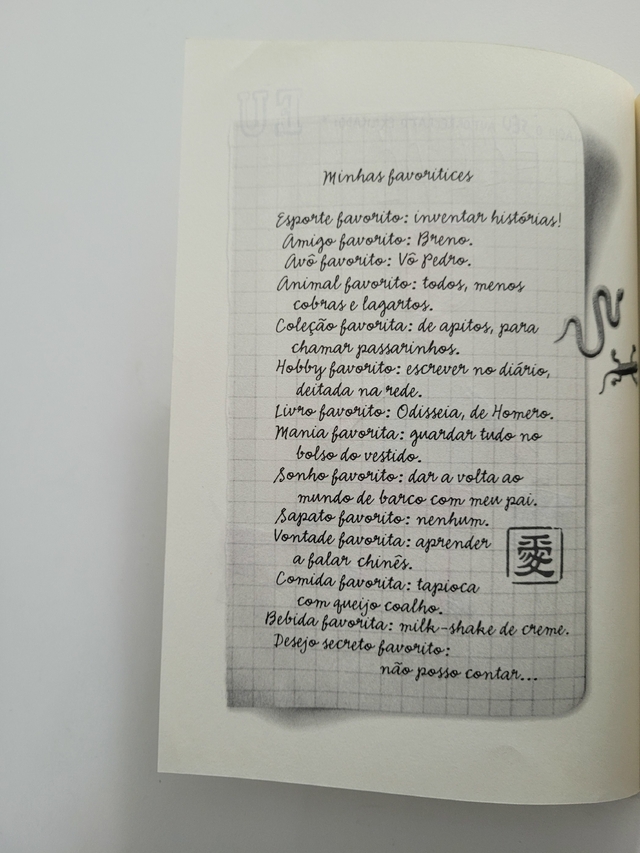 Minhas favoritices
Esporte favorito: inventar histórias!
Amigo favorito: Breno.
Avô favorito: Vô Pedro.
Animal favorito: todos, menos
cobras e lagartos.
Coleção favorita: de apitos, para
chamar passarinhos.
Hobby favorito: escrever no diário,
deitada na rede.
Livro favorito: Odisseia, de Homero.
Mania favorita: guardar tudo no
bolso do vestido.
Sonho favorito: dar a volta ao
mundo de barco com meu pai.
Sapato favorito: nenhum.
Vontade favorita: aprender
a falar chinês.
Comida favorita: tapioca
com queijo coalho.
Bebida favorita: milk-shake de creme.
Desejo secreto favorito:
não posso contar...